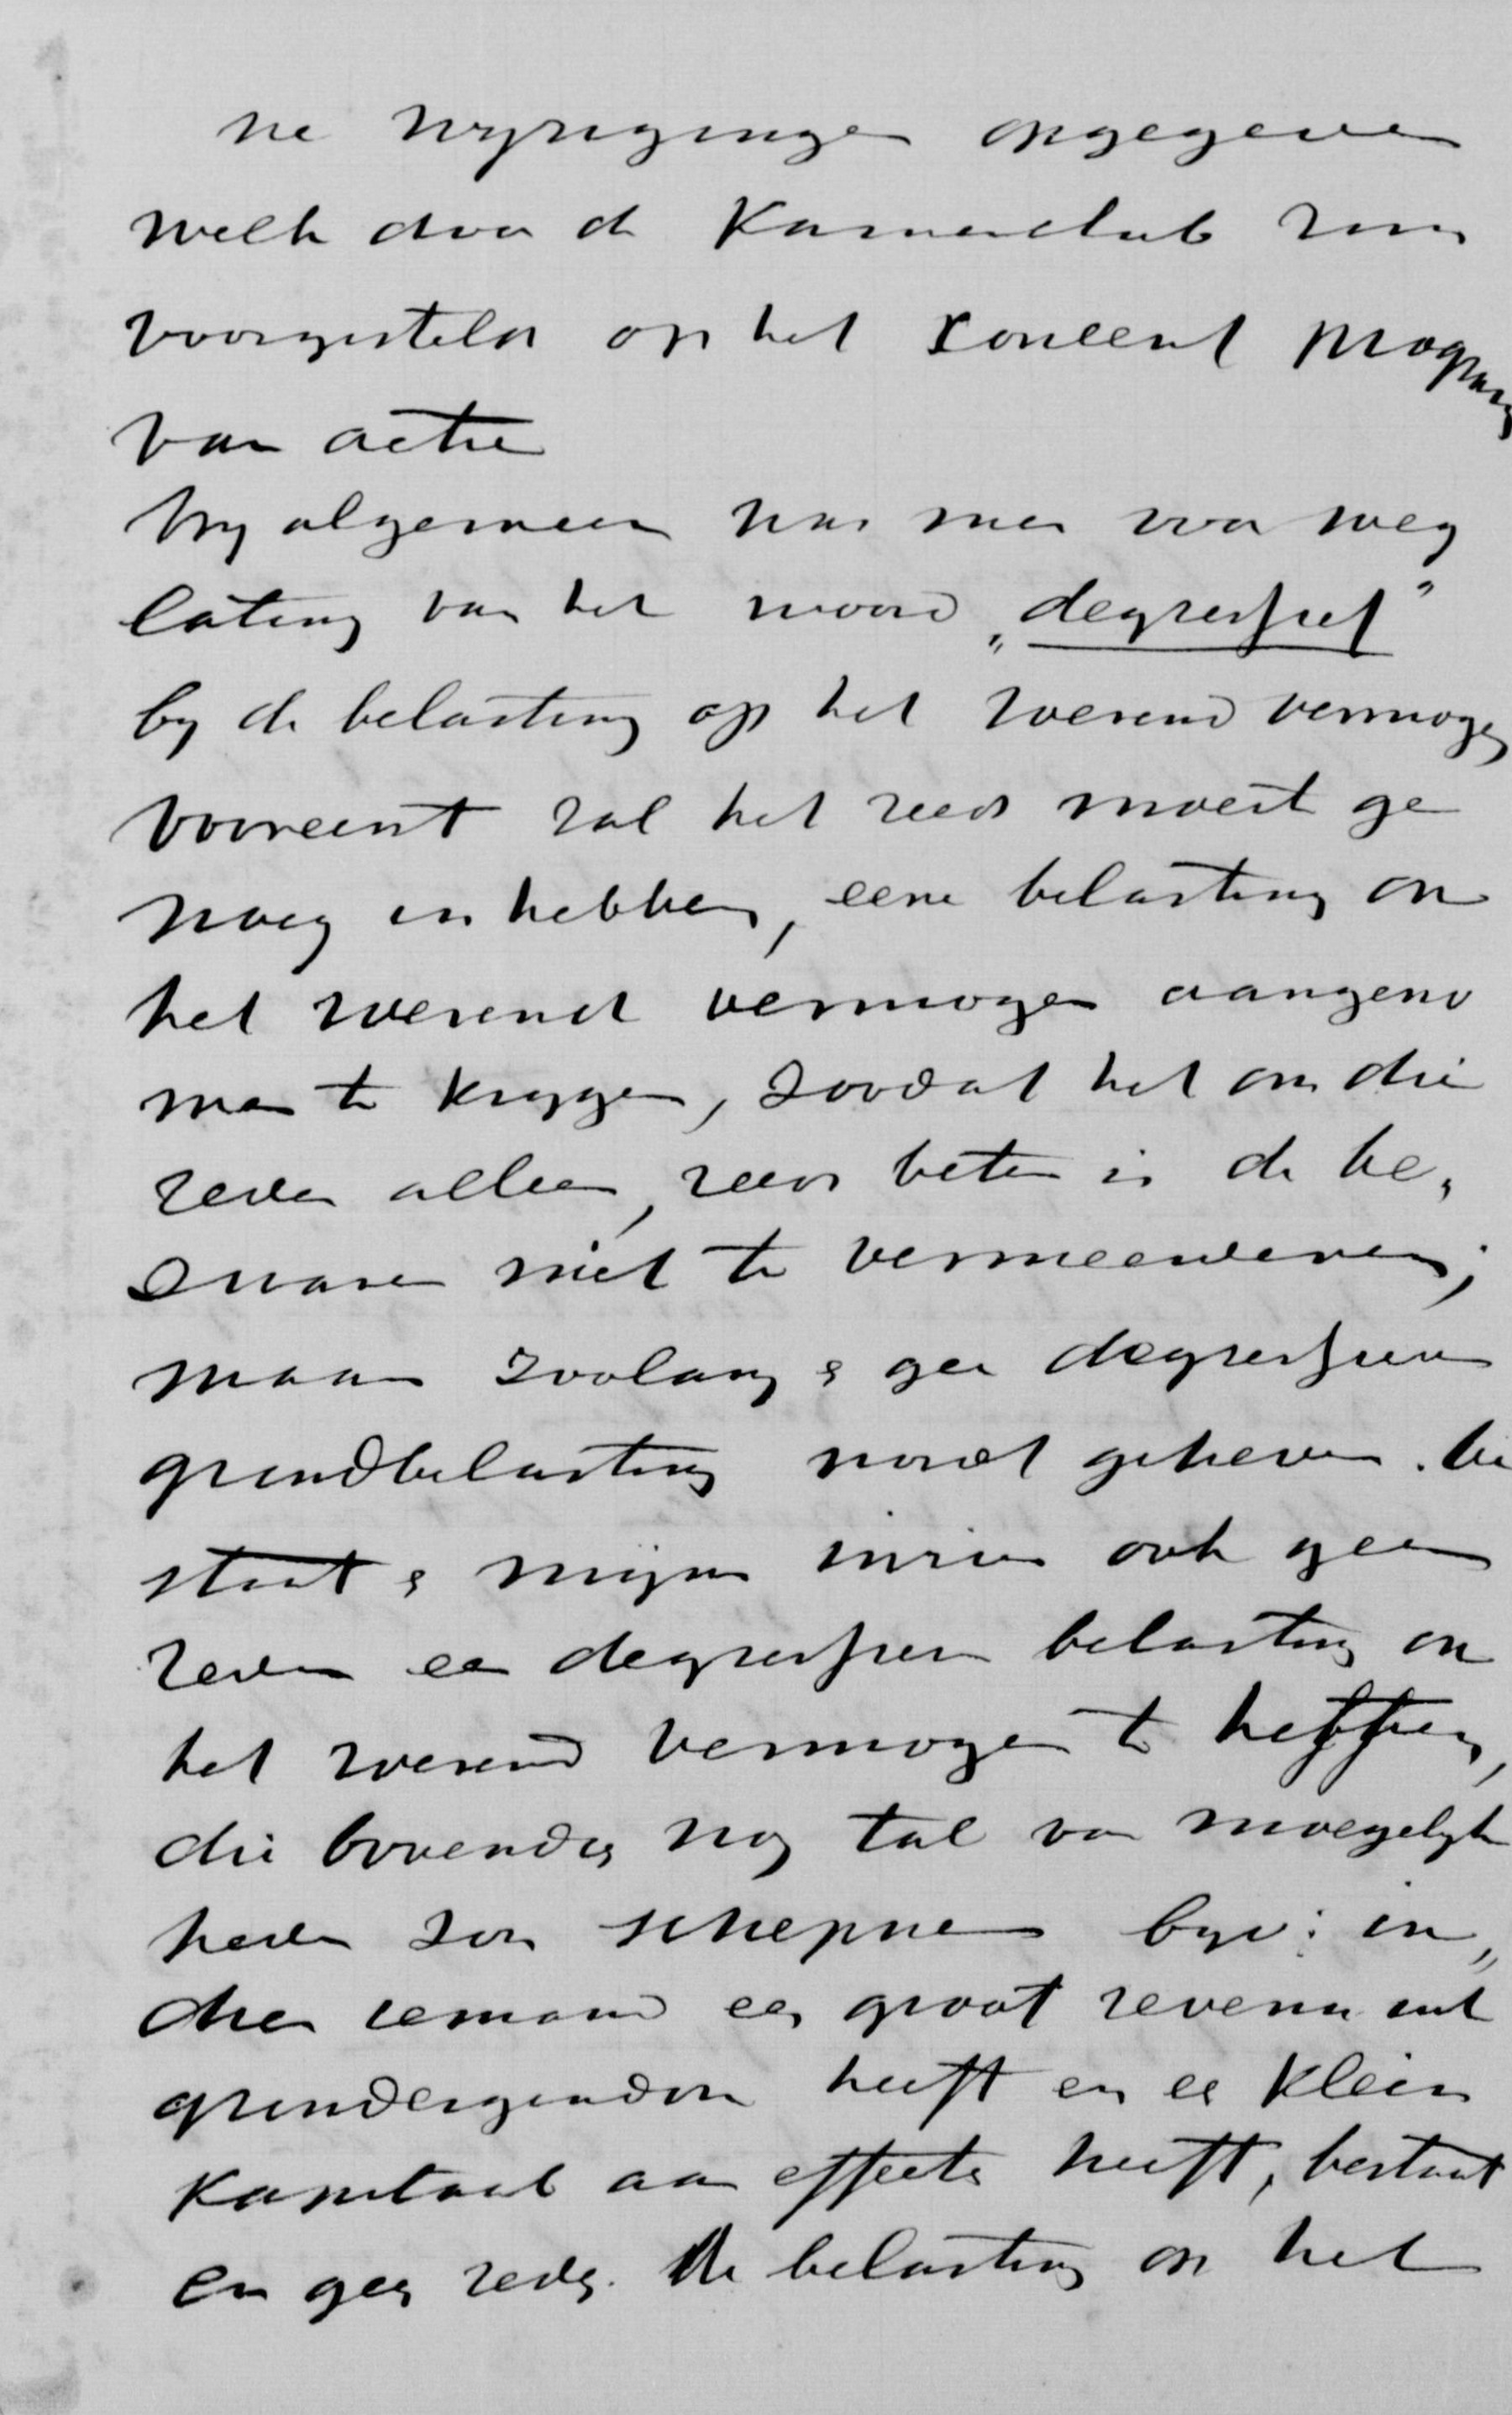 ne wyzigingen opgegeven
welke door de Kamerclub zyn
voorgesteld op het concent program
van actie
Vry algemeen was men voor weg
lating van het woord „degressief”
by de belasting op het roerend vermogen
vooreerst zal het reeds moeite ge
noeg in hebben, eene belasting op
het roerend vermogen aangeno
men te krygen, zoodat het om die
reden alleen, reeds beter is de be„
zwaren niet te vermeerderen;
maar zoolang er geen degressieve
grondbelasting wordt geheven. be
staat er mijns inziens ook geen
reden een degressieve belasting op
het roerend vermogen te heffen,
die bovendien nog tal van moeyelyk
heden zou scheppen byv: in„
dien iemand een groot revenu uit
grondeigendom heeft en een klein
kapitaal aan effecten heeft, bestaat
er geen reden de belasting op het